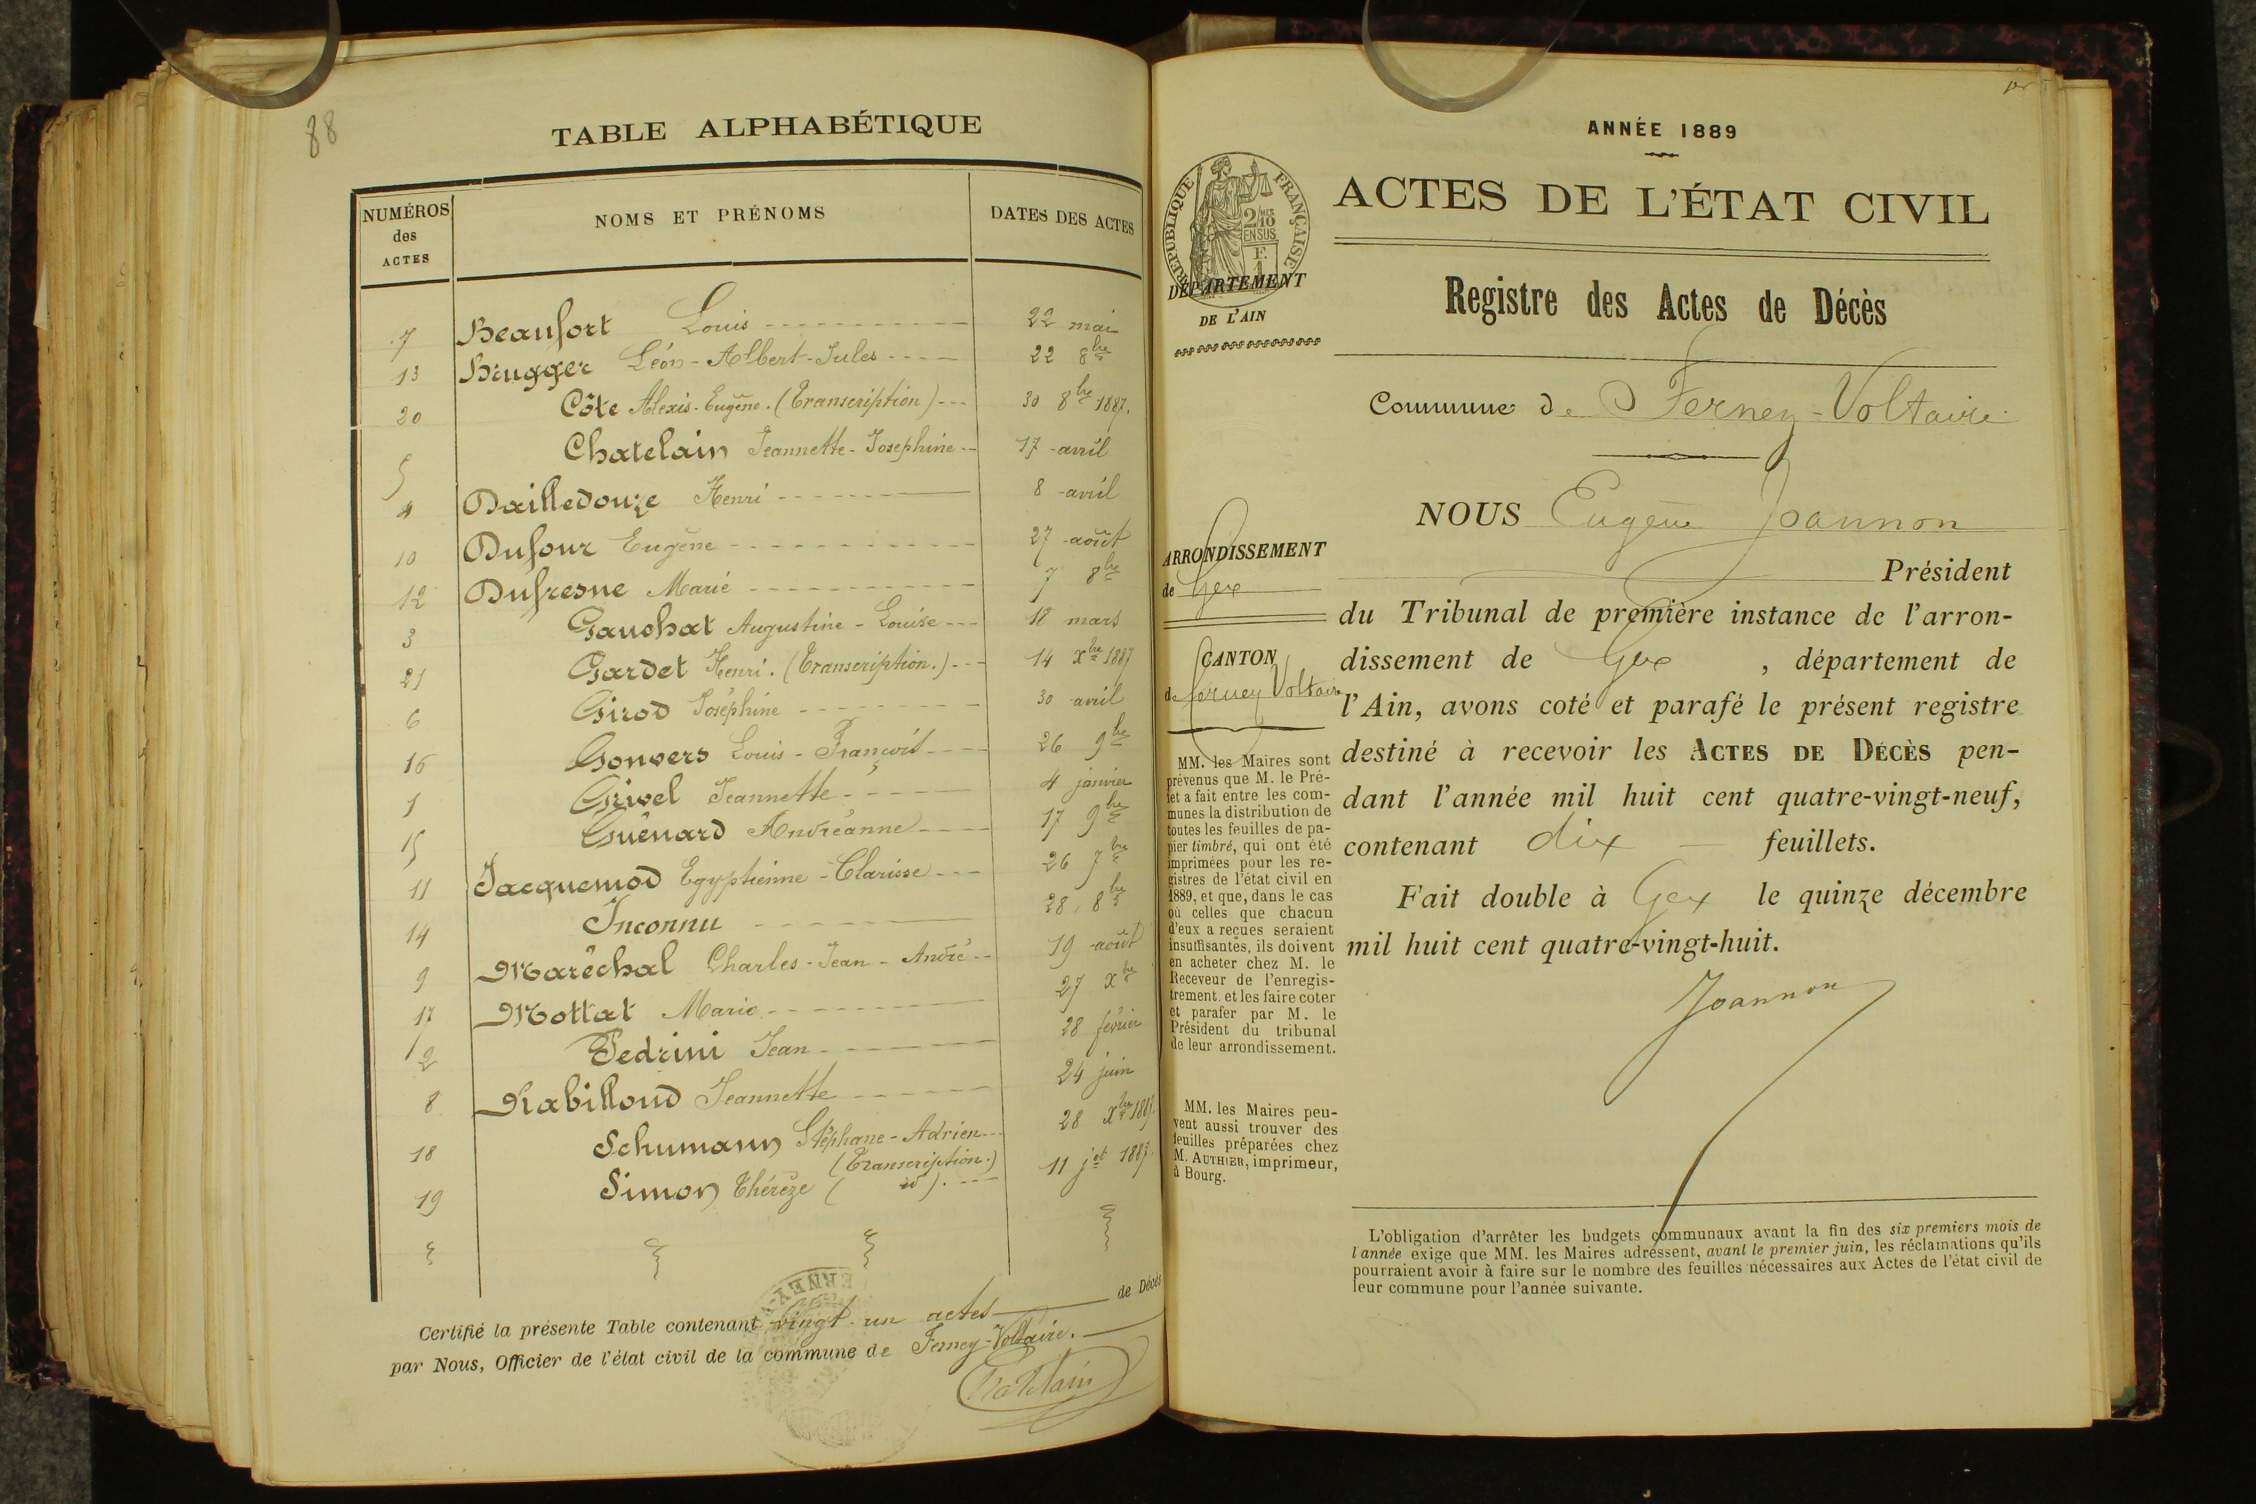 88
TABLE ALPHABÉTIQUE
NUMÉROS des ACTES
NOMS ET PRÉNOMS
DATES DES ACTES
7 Beaufort Louis 22 mai
13 Brugger Léon-Albert-Jules 22 8bre
20 Côte Alexis-Eugène. (Transcription) 30 8bre 1887.
5 Chatelain Jeannette-Josephine 17 avril
4 Dailledouze Henri 8 avril
10 Dufour Eugène 27 août
12 Dufresne Marie 7 8bre
3 Gauchat Augustine-Louise 18 mars
21 Gardet Henri. (Transcription.) 14 Xbre 1887
6 Girod Joséphine 30 avril
16 Gonvers Louis-François 26 9bre
1 Grivel Jeannette 4 janvier
15 Guénard Andréanne 17 9bre
11 Jacquemod Egyptienne-Clarisse 26 7bre
14 Inconnu 28, 8bre
9 Maréchal Charles-Jean-André 19 août
17 Mottat Marie 27 Xbre
2 Pedrini Jean 28 février
8 Rabilloud Jeannette 24 juin
18 Schumann Stéphane-Adrien 28 Xbre
(Transcription.)
19 Simon Thérèze ( id ). 11 jet
Certifié la présente Table contenant vingt-un actes de Décès
par Nous, Officier de l'état civil de la commune de Ferney-Voltaire.
ANNÉE 1889
ACTES DE L'ÉTAT CIVIL
RÉPUBLIQUE FRANÇAISE
2/10 EN SUS
F. 1
DÉPARTEMENT
DE L'AIN
Registre des Actes de Décès
Commune de Ferney-Voltaire
NOUS Eugène Joannon
ARRONDISSEMENT
de Gex
Président
du Tribunal de première instance de l'arron-
dissement de Gex, département de
l'Ain, avons coté et parafé le présent registre
destiné à recevoir les ACTES DE DÉCÈS pen-
dant l'année mil huit cent quatre-vingt-neuf,
contenant dix feuillets.
Fait double à Gex le quinze décembre
mil huit cent quatre-vingt-huit.
Joannon
CANTON
de Ferney Voltaire
MM. les Maires sont
prévenus que M. le Pré-
fet a fait entre les com-
munes la distribution de
toutes les feuilles de pa-
pier timbré, qui ont été
imprimées pour les re-
gistres de l'état civil en
1889, et que, dans le cas
où celles que chacun
d'eux a reçues seraient
insuffisantes, ils doivent
en acheter chez M. le
Receveur de l'enregis-
trement. et les faire coter
et parafer par M. le
Président du tribunal
de leur arrondissement.
MM. les Maires peu-
vent aussi trouver des
feuilles préparées chez
M. AUTHIER, imprimeur,
à Bourg.
L'obligation d'arrêter les budgets communaux avant la fin des six premiers mois de
l'année exige que MM. les Maires adressent, avant le premier juin, les réclamations qu'ils
pourraient avoir à faire sur le nombre des feuilles nécessaires aux Actes de l'état civil de
leur commune pour l'année suivante.